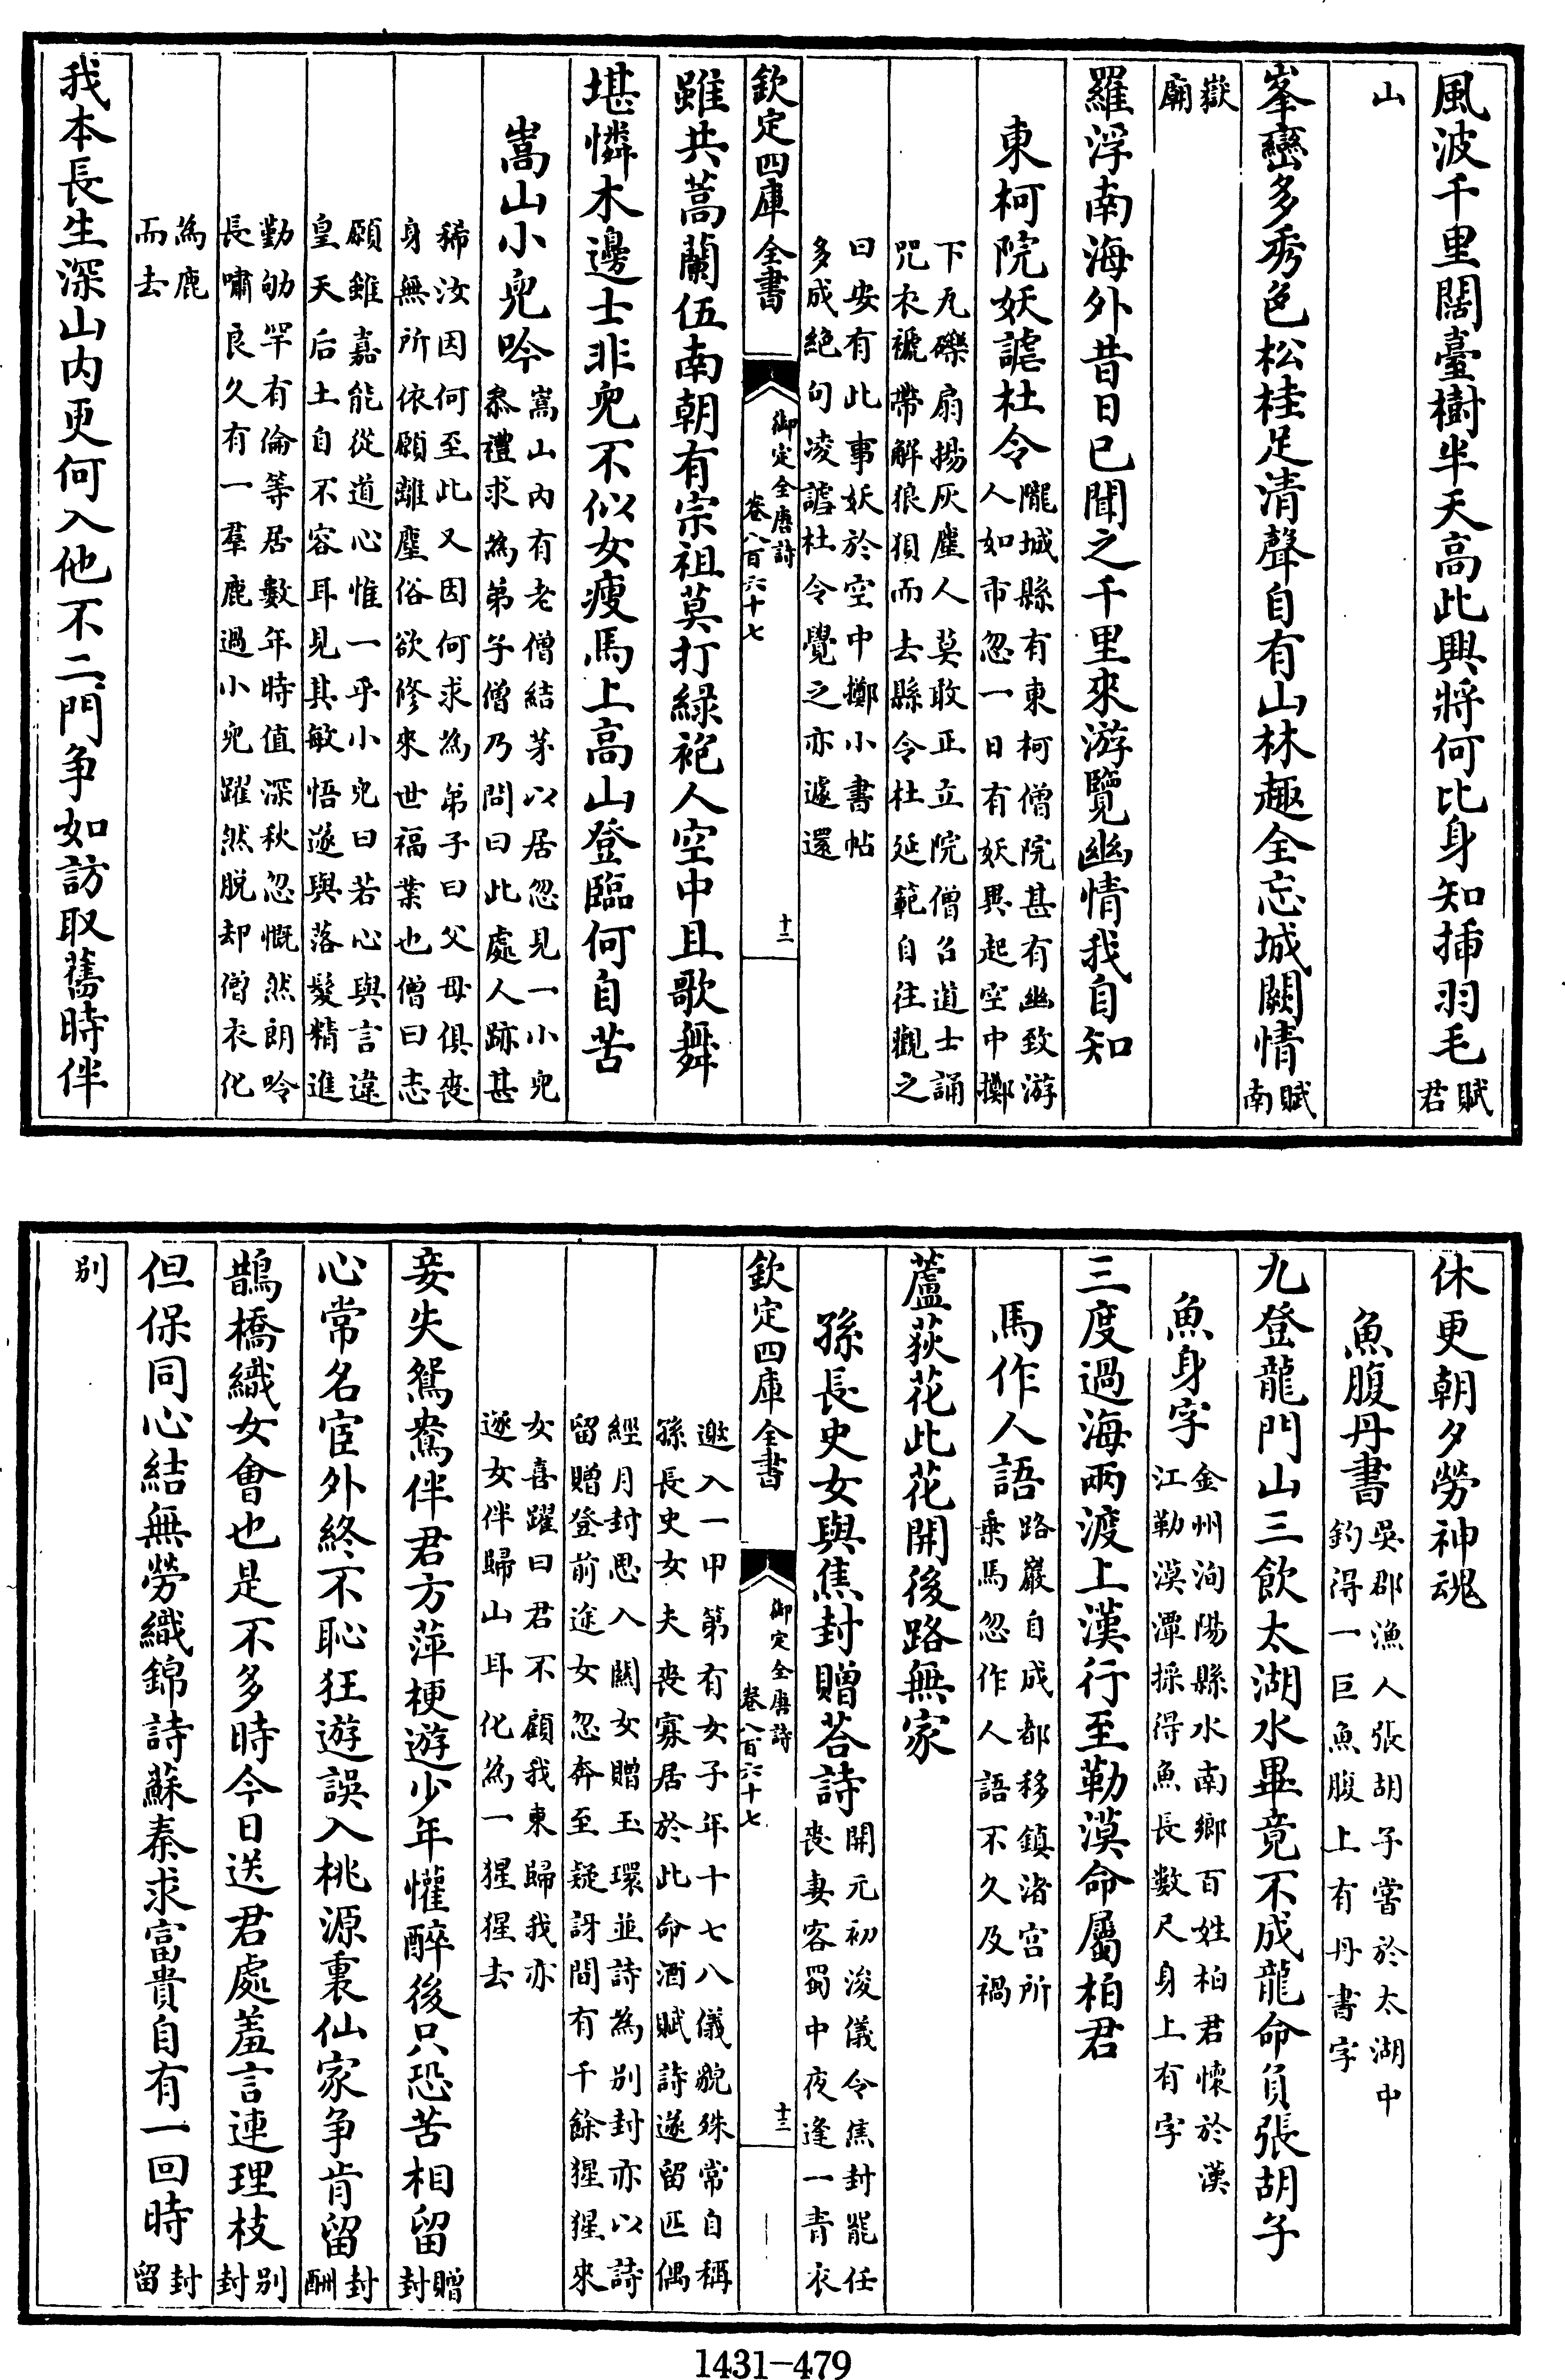 風波千里闊臺樹半天高此興將何比身知揷羽毛賦君
山
峯巒多秀色松桂足清聲自有山林趣全忘城闕情賦南
嶽廟
羅浮南海外昔日已聞之千里來游覽幽情我自知
東柯院妖謔杜令隴城縣有東柯僧院甚有幽致游人如市忽一日有妖異起空中擲
下瓦礫扇揚灰塵人莫敢正立院僧召道士誦咒衣褫帶解狼狽而去縣令杜延範自往觀之
曰安有此事妖於空中擲小書帖多成絶句凌謔杜令覺之亦遽還
欽定四庫全書 御定全唐詩卷八百六十七 十二
雖共蒿蘭伍南朝有宗祖莫打緑袍人空中且歌舞
堪憐木邊士非兒不似女瘦馬上高山登臨何自苦
嵩山小兒吟嵩山内有老僧結茅以居忽見一小兒叅禮求為弟子僧乃問曰此處人跡甚
稀汝因何至此又因何求為弟子曰父母俱喪身無所依願離塵俗欲修來世福業也僧曰志
願雖嘉能從道心惟一乎小兒曰若心與言違皇天后土自不容耳見其敏悟遂與落髮精進
勤劬罕有倫等居數年時值深秋忽慨然朗吟長嘯良久有一羣鹿過小兒躍然脱却僧衣化
為鹿而去
我本長生深山内更何入他不二門争如訪取舊時伴
休更朝夕勞神魂
魚腹丹書吳郡漁人張胡子嘗於太湖中釣得一巨魚腹上有丹書字
九登龍門山三飲太湖水畢竟不成龍命負張胡子
魚身字金州洵陽縣水南鄉百姓柏君懷於漢江勒漠潭採得魚長數尺身上有字
三度過海兩渡上漢行至勒漠命屬柏君
馬作人語路巖自成都移鎮渚宫所乗馬忽作人語不久及禍
蘆荻花此花開後路無家
孫長史女與焦封贈荅詩開元初浚儀令焦封罷任喪妻客蜀中夜逢一青衣
欽定四庫全書 御定全唐詩卷八百六十七 十三
邀入一甲第有女子年十七八儀貌殊常自稱孫長史女夫喪寡居於此命酒賦詩遂留匹偶
經月封思入關女贈玉環並詩為别封亦以詩留贈登前途女忽奔至疑訝間有千餘猩猩來
女喜躍曰君不顧我東歸我亦逐女伴歸山耳化為一猩猩去
妾失鴛鴦伴君方萍梗遊少年懽醉後只恐苦相留贈封
心常名宦外終不恥狂遊誤入桃源裏仙家争肯留封酬
鵲橋織女會也是不多時今日送君處羞言連理枝别封
但保同心結無勞織錦詩蘇秦求富貴自有一回時封留
别
1431-479